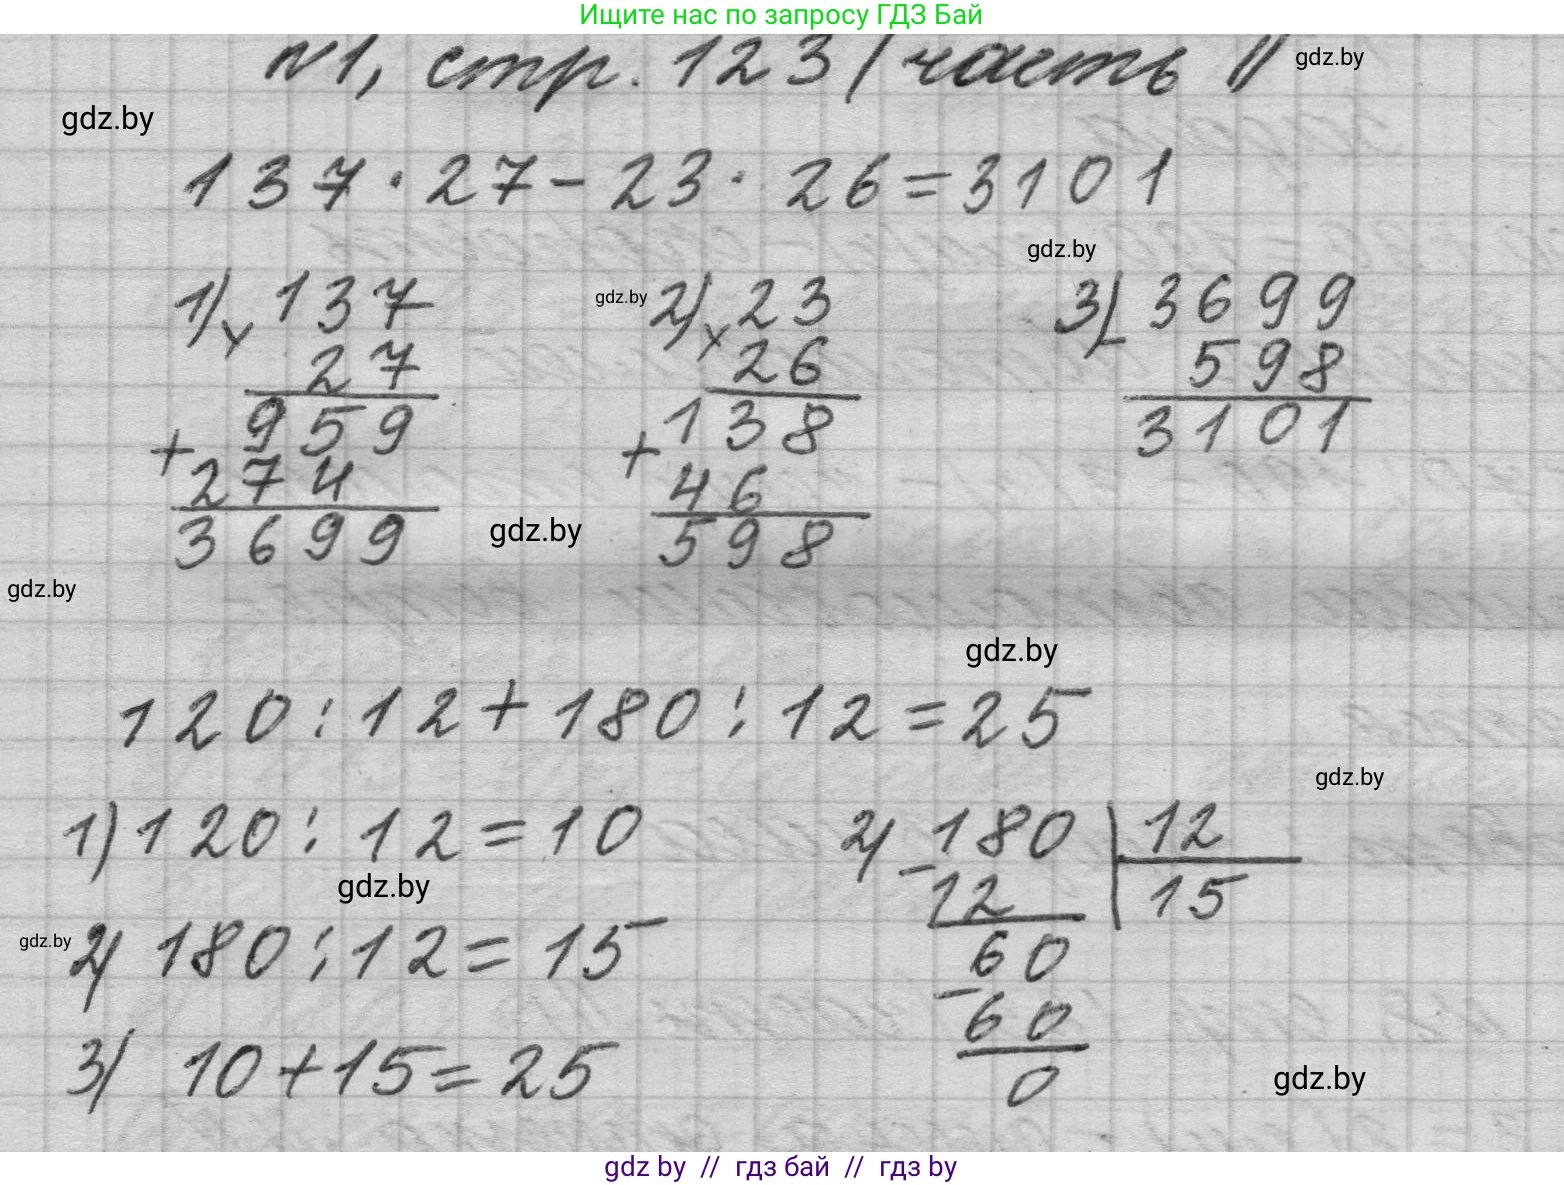 Ищите нас по запросу ГДЗ Бай
№1, стр. 123 (часть 1)
gdz.by
gdz.by
137 · 27 - 23 · 26 = 3101
gdz.by
1) 137 gdz.by 2) 23 3) 3699
× 27 × 26 - 598
959 138 3101
+ 274 + 46
3699 gdz.by 598
gdz.by
gdz.by
120 : 12 + 180 : 12 = 25
gdz.by
1) 120 : 12 = 10 2) - 180 | 12
gdz.by 12 15
gdz.by 2) 180 : 12 = 15 60
- 60
3) 10 + 15 = 25 0
gdz.by
gdz by // гдз бай // гдз by